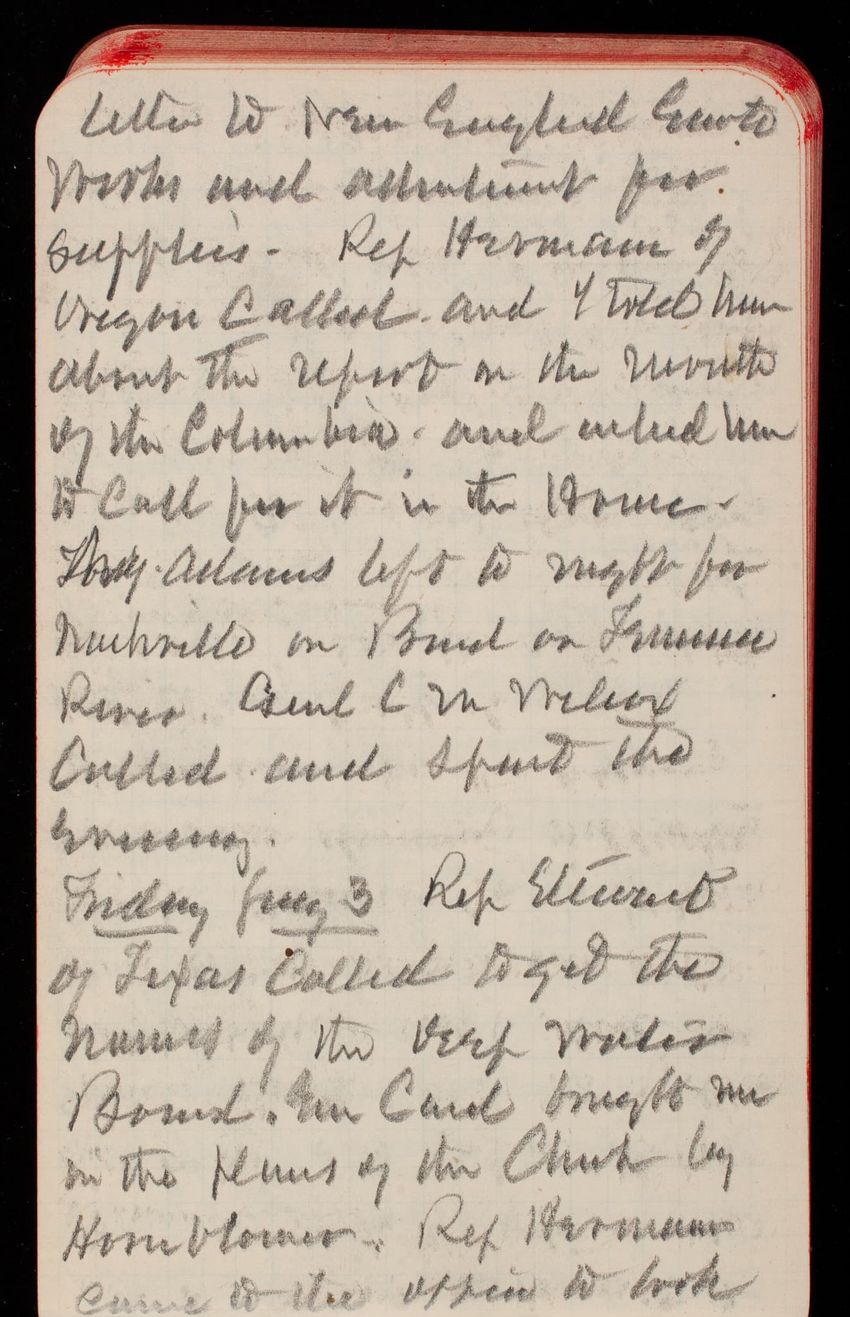 Letter to New England Granite
Works and advertisement for
supplies. Rep Hermann of
Oregon Called and I told him
about the report on the mouth
of the Columbia. and asked him
to Call for it in the House.
Adams left to night for
Nashville on Board on Tennessee
River. Genl C M Wilcox
Called and spent the
evening.
Friday Jany 3 Rep Stewart
of Texas Called to get the
names of the deep water
Board. Genl Casey brought me
in the plans of the Church by
Hornblower. Rep Hermann
came to the office to look